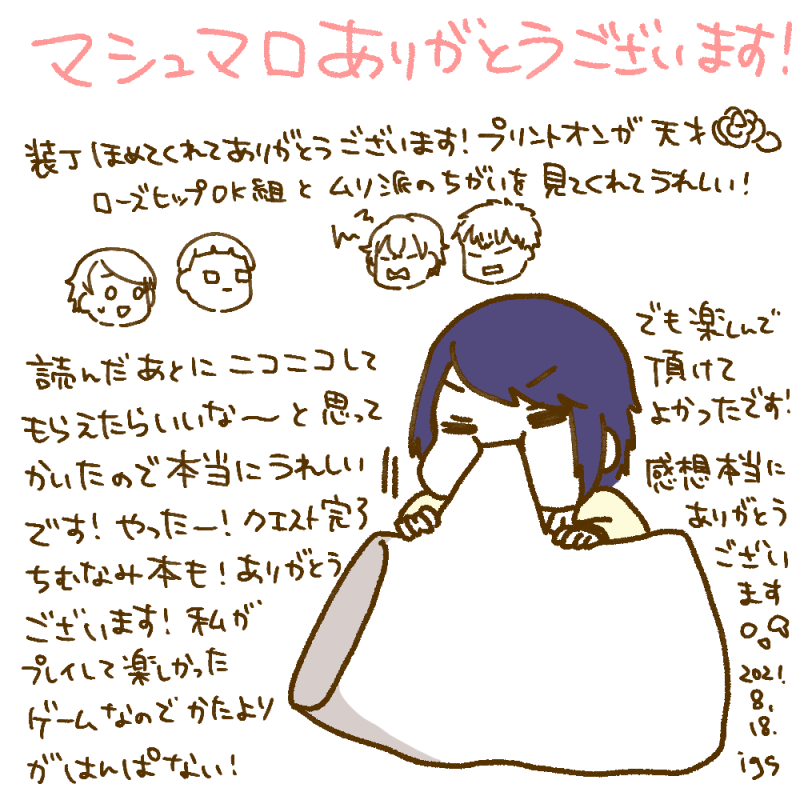 マシュマロありがとうございます!
装丁ほめてくれてありがとうございます!プリントオンが天才
ローズヒップOK組とムリ派のちがいを見てくれてうれしい!
読んだあとにニコニコして
もらえたらいいな〜と思って
かいたので本当にうれしい
です!やったー!クエスト完了
ちむなみ本も!ありがとう
ございます!私が
プレイして楽しかった
ゲームなのでかたより
がはんぱない!
でも楽しんで
頂けて
よかったです!
感想本当に
ありがとう
ござい
ます
2021.
8.
18.
igs